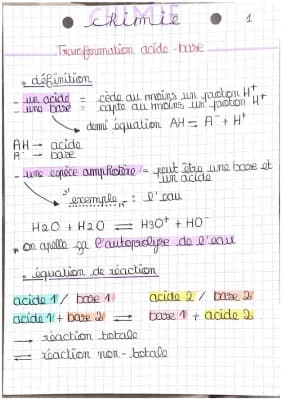 CHIMIE
chimie
1
Transformation acide-base
• définition
- un acide = cède au moins un proton H⁺
- une base = capte au moins un proton H⁺
↳ demi équation AH = A⁻ + H⁺
AH → acide
A⁻ → base
- une espèce amphotère = peut être une base et un acide
↳ exemple : l'eau
H2O + H2O ⇌ H3O⁺ + HO⁻
• on apelle ça l'autoprolyse de l'eau
• équation de réaction
acide 1 / base 1 acide 2 / base 2
acide 1 + base 2 ⇌ base 1 + acide 2
→ réaction totale
⇌ réaction non-totale